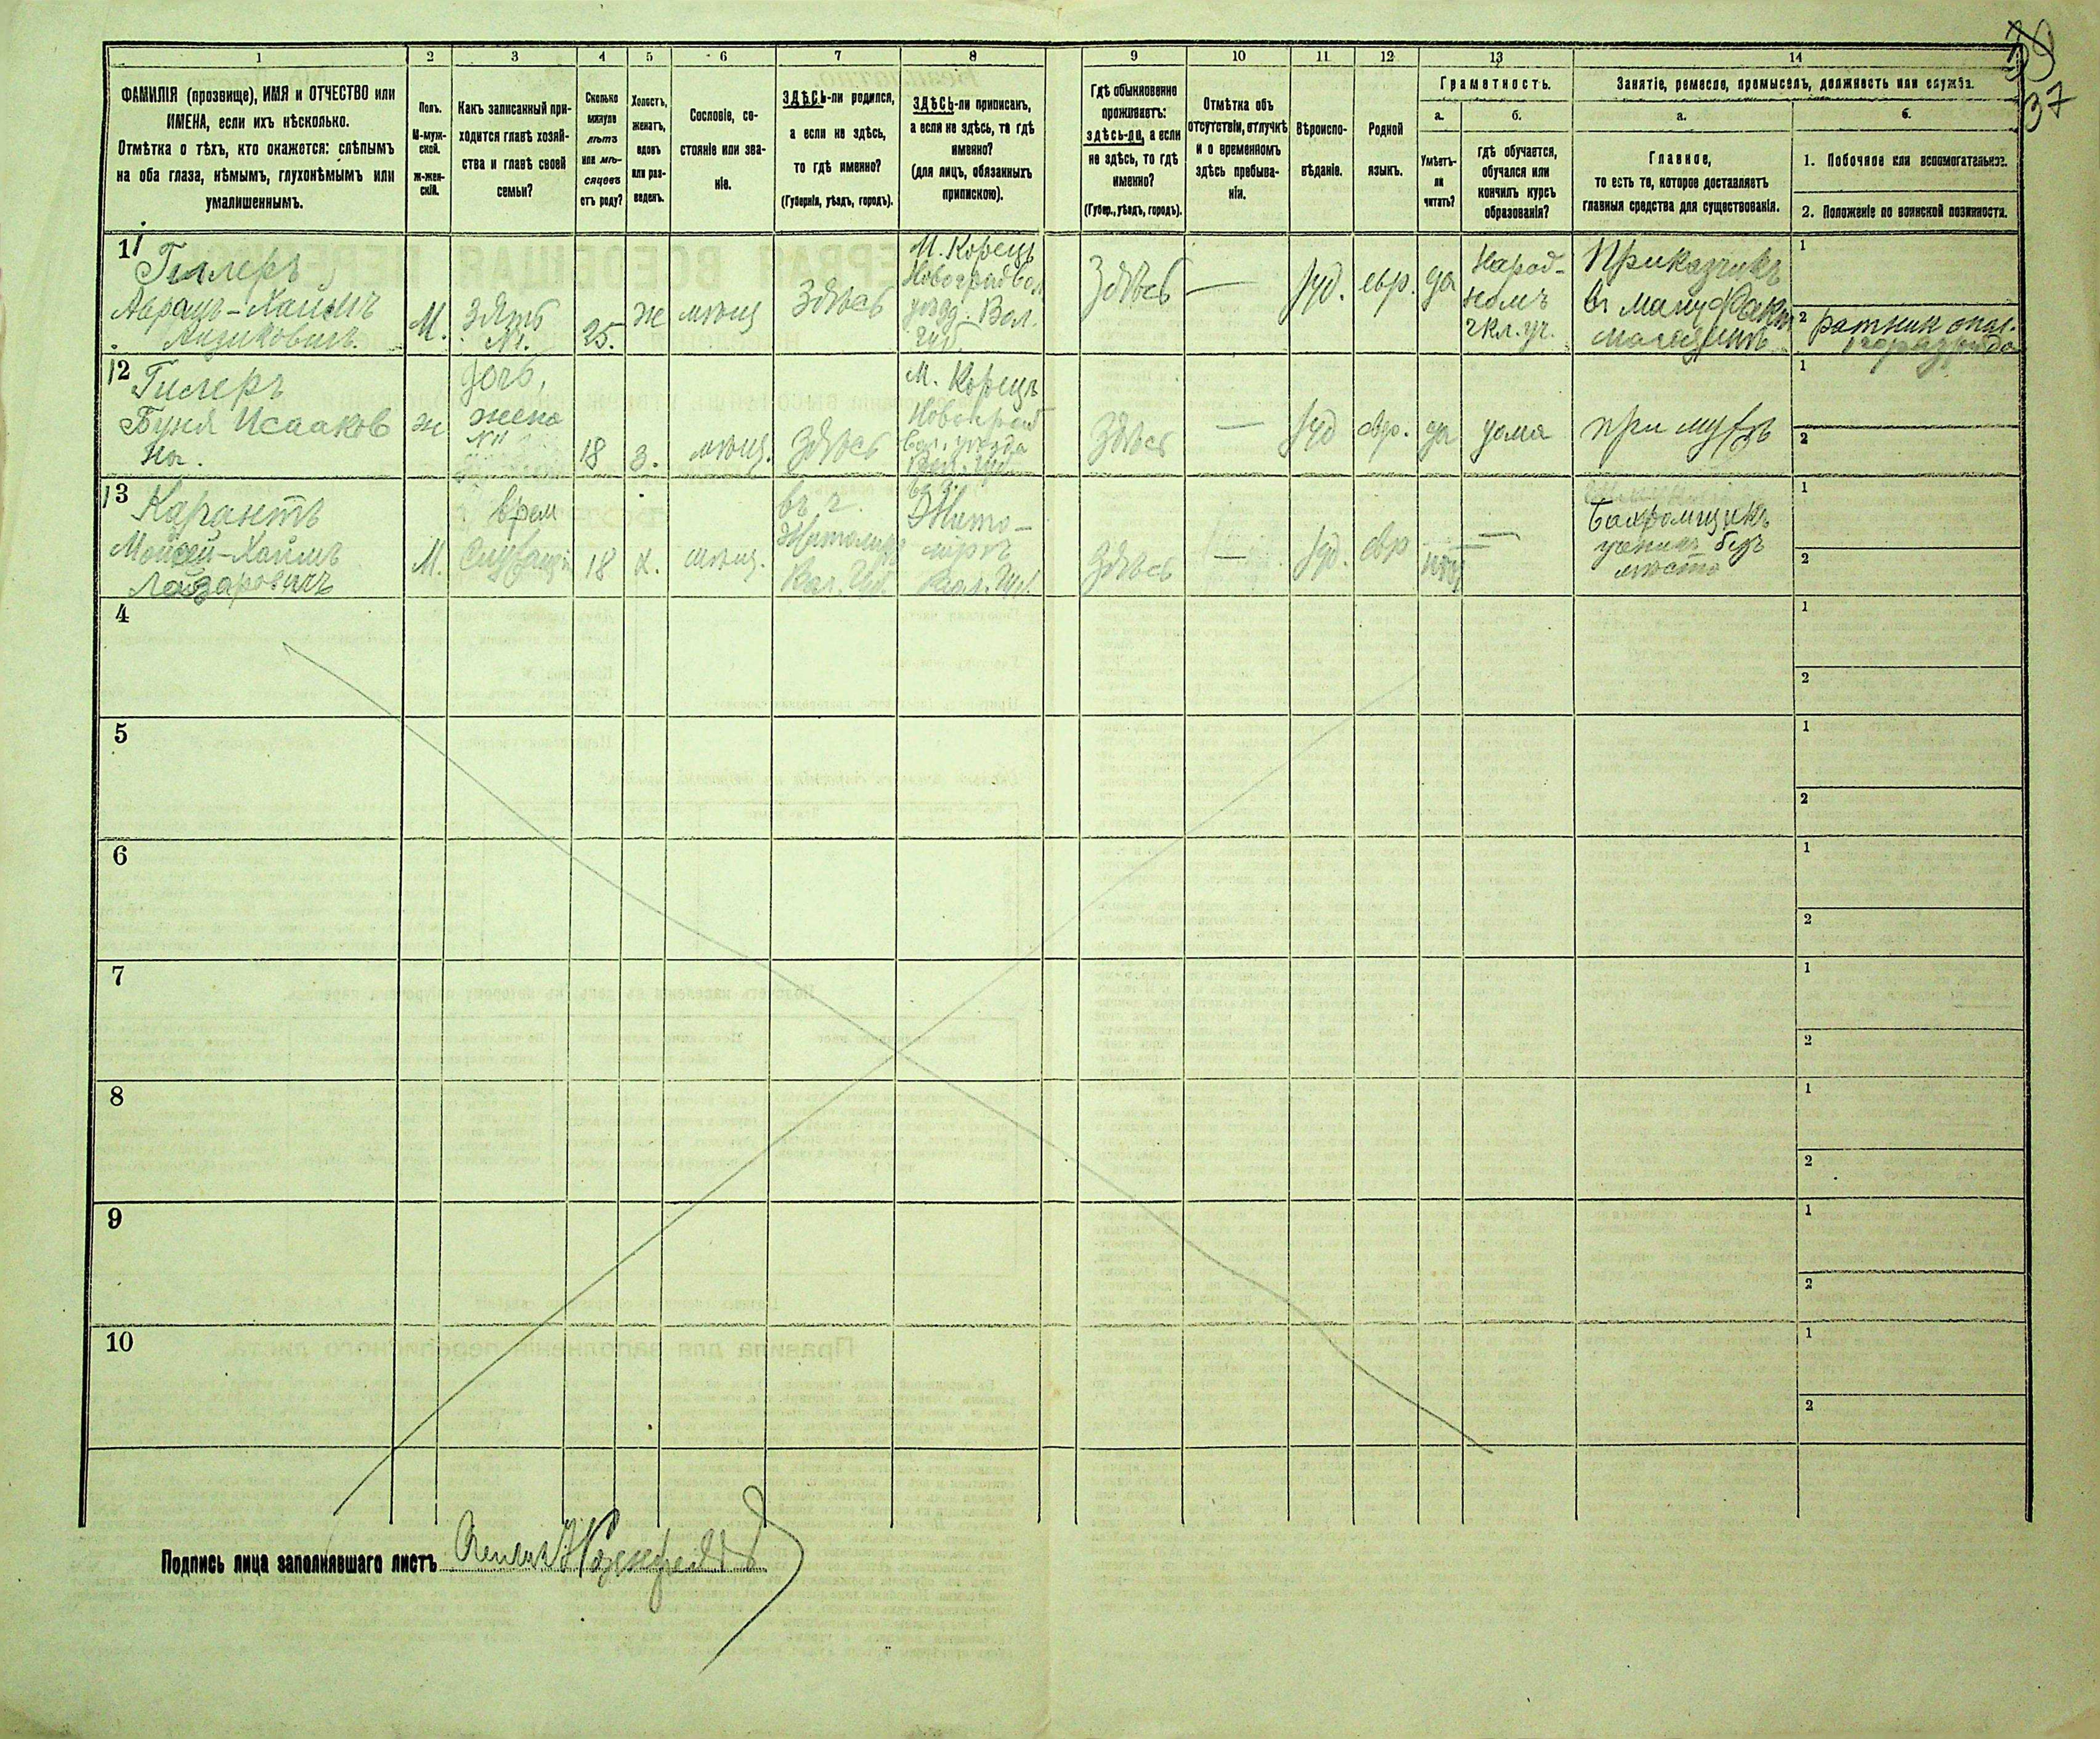 39
37
1
2
3
4
5
6
7
8
9
10
11
12
13
14
ФАМИЛІЯ (прозвище), ИМЯ и ОТЧЕСТВО или
ИМЕНА, если ихъ нѣсколько.
Отмѣтка о тѣхъ, кто окажется: слѣпымъ
на оба глаза, нѣмымъ, глухонѣмымъ или
умалишеннымъ.
Полъ.
М-муж-
ской.
ж-жен-
скій.
Какъ записанный при-
ходится главѣ хозяй-
ства и главѣ своей
семьи?
Сколько
минуло
лѣтъ
или мѣ-
сяцевъ
отъ роду?
Холостъ,
женатъ,
вдовъ
или раз-
веденъ.
Сословіе, со-
стояніе или зва-
ніе.
ЗДѢСЬ-ли родился,
а если не здѣсь,
то гдѣ именно?
(Губернія, уѣздъ, городъ).
ЗДѢСЬ-ли приписанъ,
а если не здѣсь, то гдѣ
именно?
(для лицъ, обязанныхъ
припискою).
Гдѣ обыкновенно
проживаетъ:
здѣсь-ли, а если
не здѣсь, то гдѣ
именно?
(Губер., уѣздъ, городъ).
Отмѣтка объ
отсутствіи, отлучкѣ
и о временномъ
здѣсь пребыва-
ніи.
Вѣроиспо-
вѣданіе.
Родной
языкъ.
Грамотность.
а.
Умѣетъ-
ли
читать?
б.
гдѣ обучается,
обучался или
кончилъ курсъ
образованія?
Занятіе, ремесло, промыселъ, должность или служба.
а.
Главное,
то есть то, которое доставляетъ
главныя средства для существованія.
б.
1. Побочное или вспомогательное.
2. Положеніе по воинской повинности.
11
Гиллеръ
Авраамъ-Хаимъ
М.
Зять
25.
ж
мѣщ
Здѣсь
М. Корецъ
уѣзд. Вол.
Губ.
Здѣсь
—
Іуд.
евр.
да
Народ-
номъ
2 кл. уч.
Приказчикъ
въ мануфакт
магазинѣ
1
2
ратник опол.
1го разряда
12
Гилеръ
Буня Исааков
на.
ж
дочь,
жена
18
З.
мѣщ.
Здѣсь
М. Корецъ
вол. уѣзда
Вол. Губ.
Здѣсь
—
Іуд
евр.
да
дома
при мужѣ
1
2
13
Карантъ
Моисей-Хаимъ
Лейзаровичъ
М.
Служащ
18
Х.
мѣщ.
въ г.
Житомирѣ
Вол. Губ.
Жито-
мірѣ
Вол. Губ.
Здѣсь
—
Іуд.
евр
нѣтъ
—
Бахромщикъ
безъ
мѣста
1
2
4
1
2
5
1
2
6
1
2
7
1
2
8
1
2
9
1
2
10
1
2
Подпись лица заполнявшаго листъ